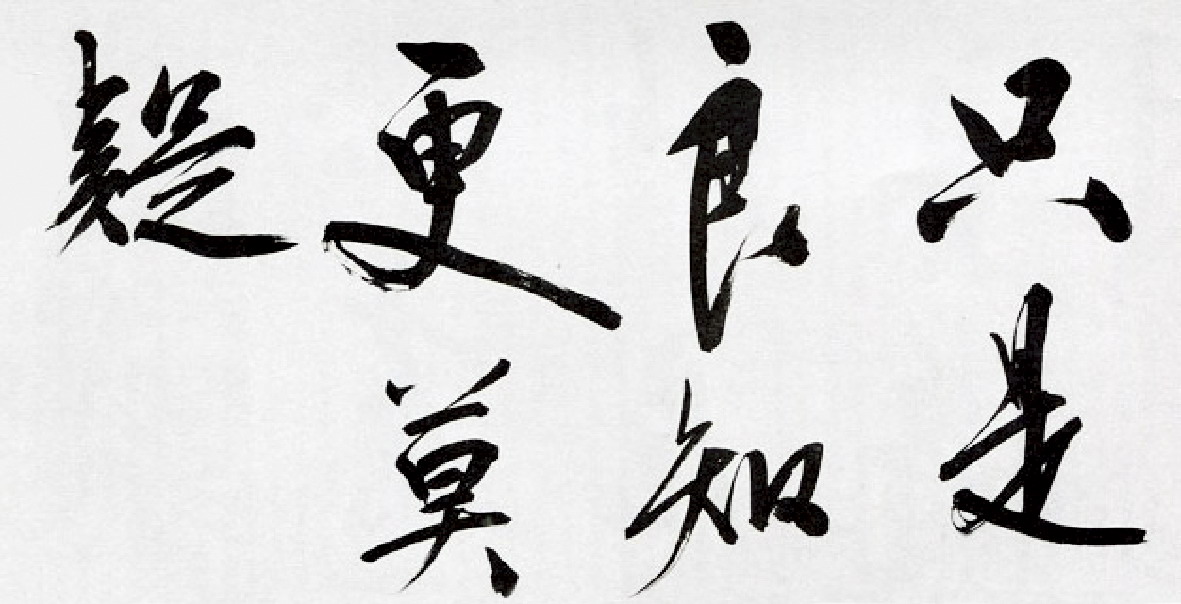 只是
良知
更莫
疑